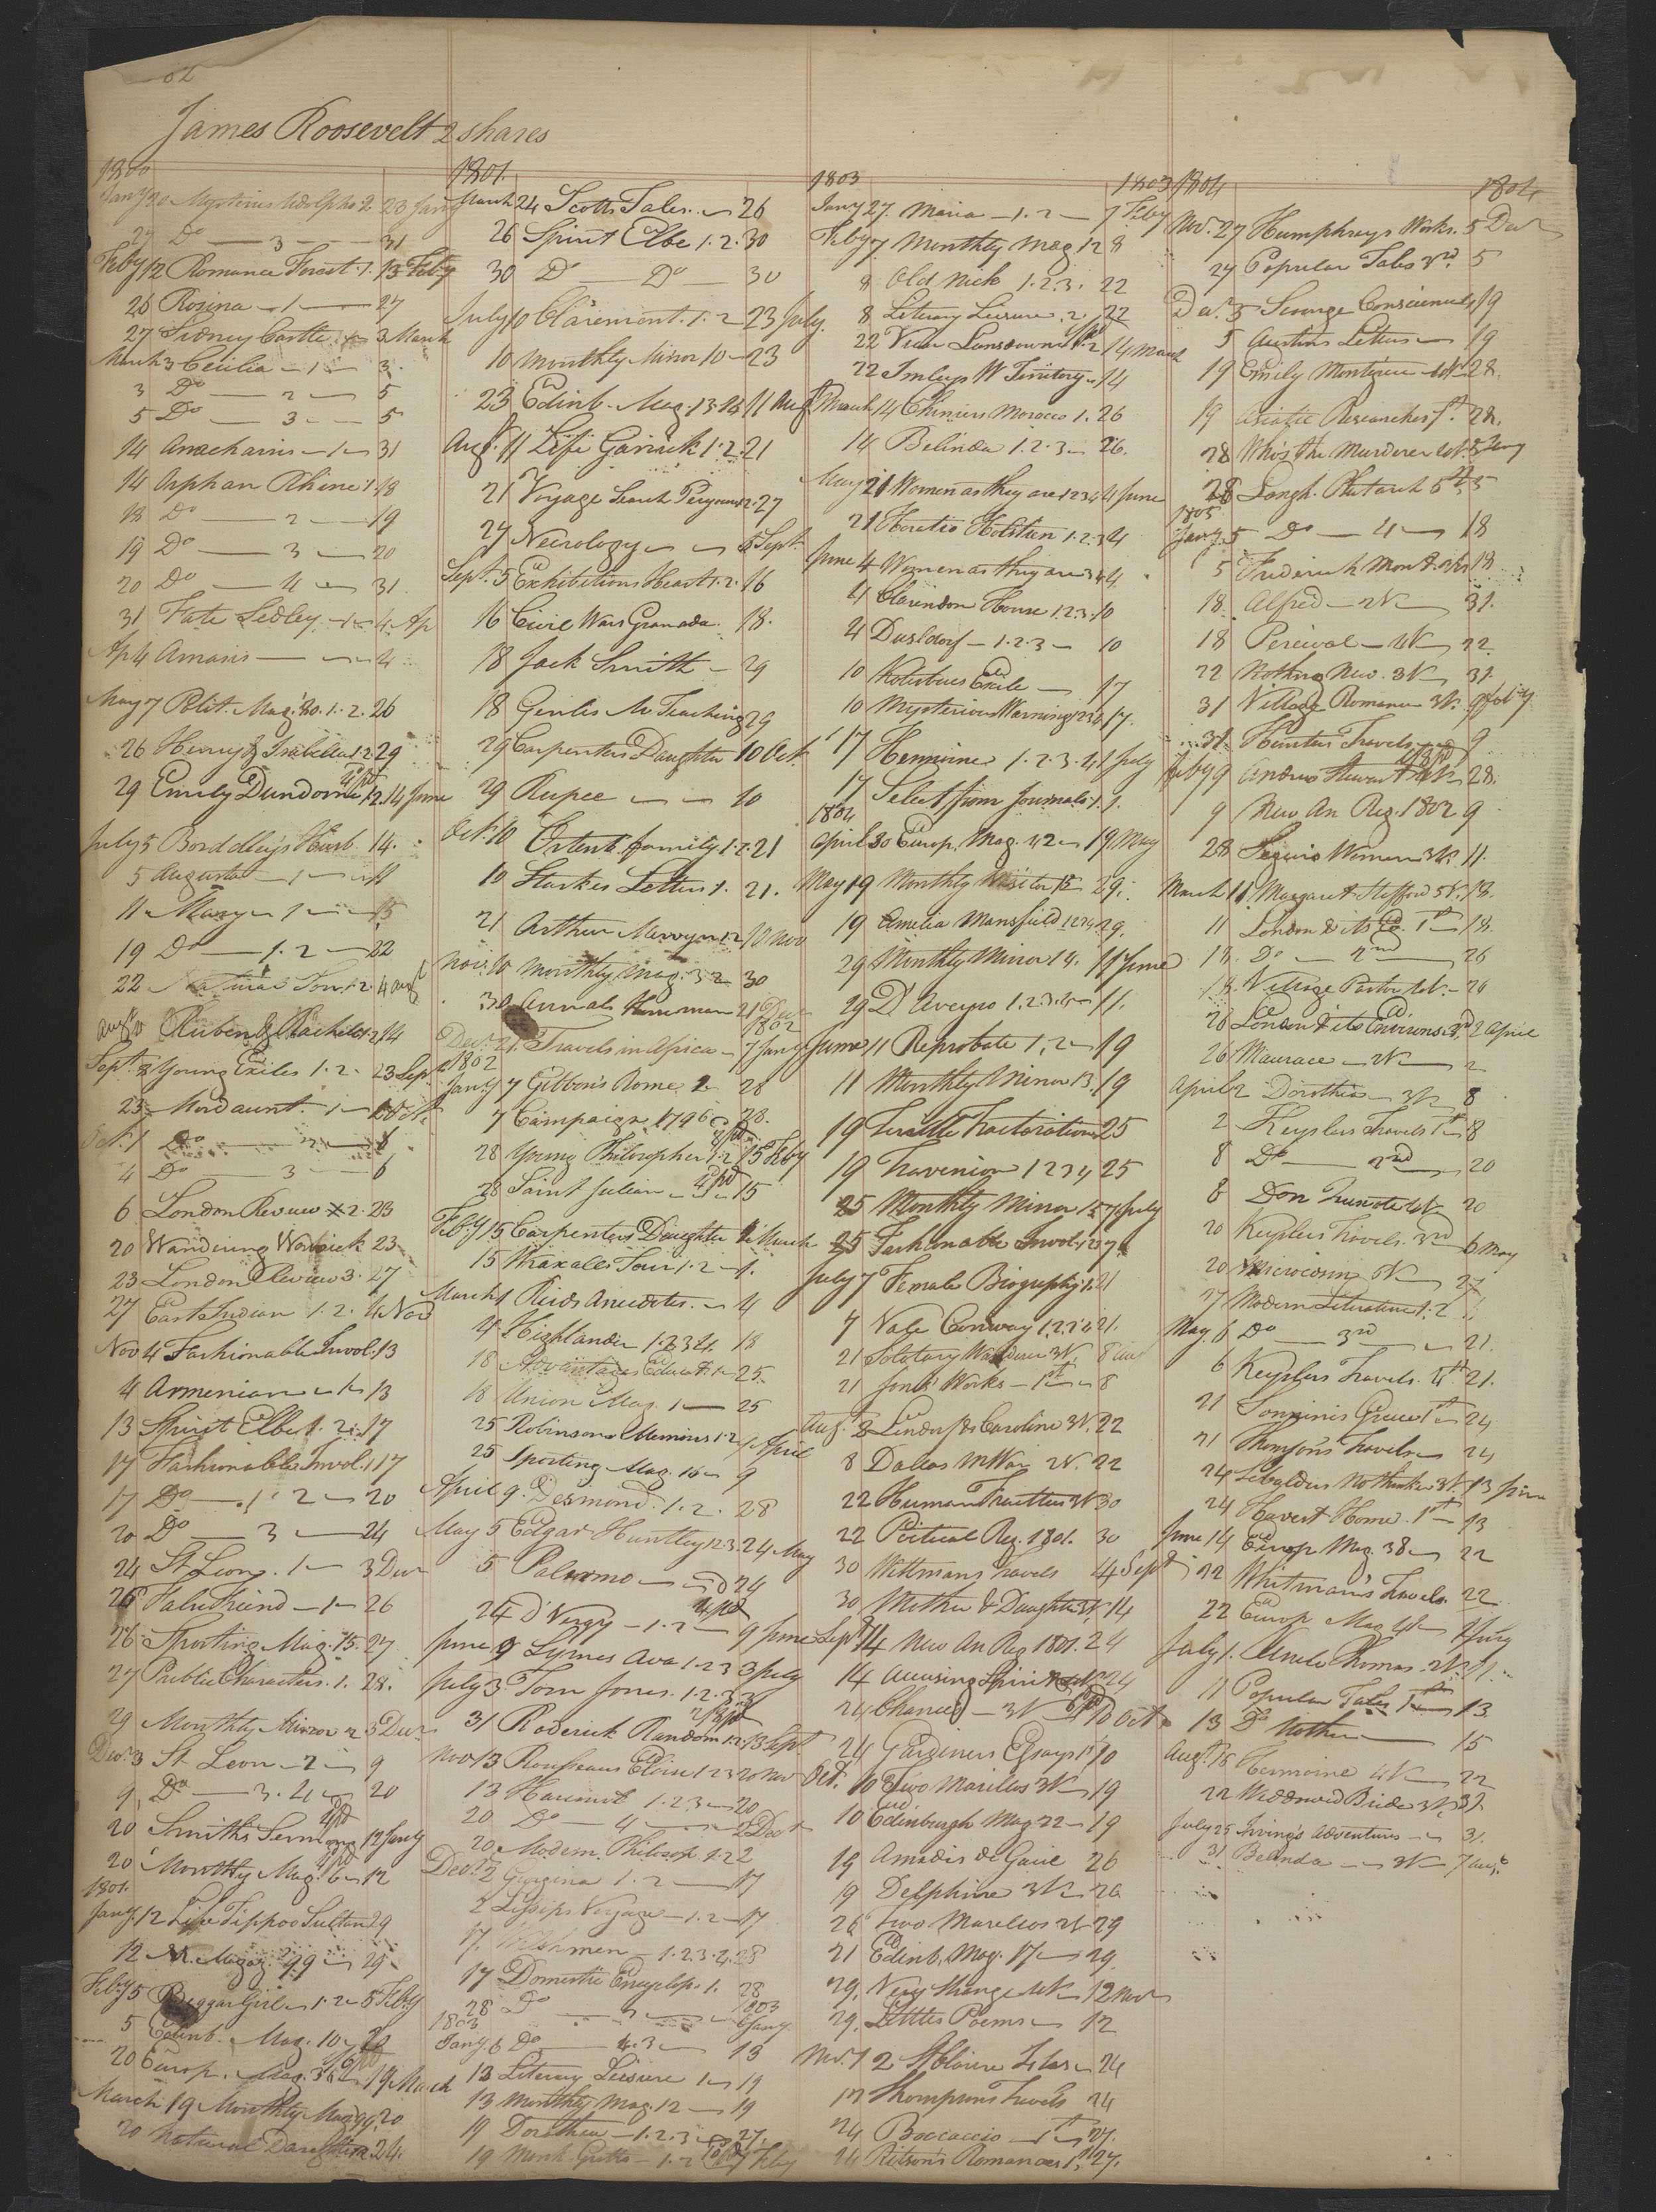 62
James Roosevelt 2 shares
1800
Jany 20 Mysteries Udolpho 2 23 Jany
27 Do 3 31
Feby 12 Romance Forest 1. 13 Feby
26 Rosina 1 27
27 Sidney Castle 3 March
March 3 Cecilia 1 3
3 Do 2 5
5 Do 3 5
14 Anacharsis 1 31
14 Orphan Rhine 1. 18
18 Do 2 19
19 Do 3 20
20 Do 4 31
31 Fate Sedley 1 4 Ap
Ap 4 Amasis 4
May 7 Polit. Mag. 80. 1. 2. 26
26 Henry & Isabella 1.2 29
29 Emily Dundorne 1.2. 14 June
July 5 Bord dley's Husb 14.
5 Augusta 1 11
11 Mary 1 15
19 Do 1. 2 22
22 Natural Son 1.2. 4 augt
augt Ruben & Rachel 1.2 14
Sept. 8 Young Exiles 1. 2. 23 Sept
23 Mordaunt. 1 Oct
Oct. 1 Do 2
4 Do 3 6
6 London Review 2. 23
20 Wandering Warwick 23
23 London Review 3. 27
27 East Indian 1. 2. 4 Nov
Nov 4 Fashionable Invol. 13
4 Armenian 1 13
13 Spirit Elbe 1. 2. 17
17 Fashionable Invol. 1 17
17 Do 1. 2 20
20 Do 3 24
24 St Leon. 1 3 Decr
26 False Friend 1 26
26 Sporting Mag. 15. 27
27 Public Characters. 1. 28.
29 Monthly Mirror 2 3 Decr
Decr. 3 St Leon 2 9
9 Do 3. 4 20
20 Smiths Sermons 12 Jany
20 Monthly Mag. 6 12
1801.
Jany. 12 Life Tippoo Sultan 29
12 N. Magaz. 99 29
Feby 5 Beggar Girl 1. 2 5 Feby
5 Edinb. Mag. 10 20
20 Europ. Mag. 36 19 March
March 19 Monthly Mag. 99. 20
20 Natural Daughter 24.
1801.
March 24 Scotts Tales 26
26 Spirit Elbe 1. 2. 30
30 Do Do 30
July 10 Claremont. 1. 2 23 July
10 Monthly Mirror 10 23
23 Edinb. Mag. 13. 14 11 Augt
Augt. 11 Life Garrick 1. 2. 21
21 Voyage Search Perouse 1.2. 27
27 Necrology 5 Sept.
Sept. 5 Exhibitions Heart 1. 2. 16
16 Civil Wars Granada. 18.
18 Jack Smith 29
18 Genlis M Teaching 29
29 Carpenters Daughter 10 Oct.
29 Rupee 10
Oct. 10 Ortenb. family 1. 2. 21
10 Starkes Letters 1. 21.
21 Arthur Mervyn 1.2 10 Nov
Nov. 10 Monthly Mag. 3 2 30
30 Annals 21 Decr
1802
Decr 21. Travels in Africa 7 Jany
1802
Jany 7 Gibbons Rome 2 28
7 Campaign 1796 28.
28 Young Philosopher 1. 2 15 Feby
28 Saint Julian 15
Feby 15 Carpenters Daughter 1 March
15 Wraxalls Tour 1. 2 1.
March 1 Reids Anecdotes. 4
4 Highlander 1. 2. 3. 4. 18
18 Advantages Educat. 1 25.
18 Union Mag. 1 25
25 Robinsons Memoirs 1. 2 9 April
25 Sporting Mag. 16 9
April 9. Desmond. 1. 2. 28
May 5 Edgar Huntley 1.2.3. 24 May
5 Palermo 24
24 D'Vergy 1. 2 9 June
June 9 Lymes Ava 1. 2 3 3 July
July 3 Tom Jones. 1. 2. 3
31 Roderick Random 1. 2 13 Sept
Nov 13 Rousseaus Eloise 1 2 3 20 Nov
13 Harcourt 1. 2. 3 20
20 Do 4 2 Decr
20 Modern Philosop. 1. 2 2
Decr 2 Georgina 1. 2 17
2 Lessips Voyage 1. 2 17
17. Welshmen 1. 2. 3. 4. 28
17 Domestic Encyclop. 1. 28
28 Do 2 1803
1803 6 Jany.
Jany. 6 Do 4. 3 13
13 Literary Leisure 1 19
13 Monthly Mag. 12 19
19 Dorothea 1. 2. 3 27.
19 Monk Grotto 1. 2 7 Feby
1803 1803
Jany 27. Maria 1. 2 7 Feby
Feby 7 Monthly Mag 12 8
8 Old Nick 1. 2. 3. 22
8 Literary Leisure. 2. 22
22 Vicar Lansdowne 1. 2 14 March
22 Imlays W Territory 14
March 14 Cheniers Morocco 1. 26
14 Belinda 1. 2. 3 26.
May 21 Women as they are 1 2 3 4 4 June
21 Horatio Holstein 1. 2. 3 4
June 4 Women as they are 3 4 4
4 Clarendon House 1. 2. 3. 10
4 Dusldorf 1. 2. 3 10
10 Kotzebues Exile 17
10 Mysterious Warning 1 2 3 4 17.
17 Hermione 1. 2. 3. 4 1 July
17 Select from Journals 1. 1.
1804
April 30 Europ. Mag. 42 19 May
May 19 Monthly Visitor 12 29.
19 Amelia Mansfield 1 2 3 4 29.
29 Monthly Mirror 14. 11 June
29 D'Aveyro 1. 2. 3. 4 11.
June 11 Reprobate 1, 2 19
11 Monthly Mirror 13. 19
19 Terrible Tractoration 25
19 Travenion 1 2 3 4 25
25 Monthly Mirror 15 7 July
25 Fashionable Invol. 1 2 3 7
July 7 Female Biography 1. 21
7 Vale Conway 1. 2. 3. 4 21.
21 Solitary Wanderer 3V. 8 Aug
21 Jones' Works 1st 8
Augt. 8 Lindorf & Caroline 3V. 22
8 Dallas M War 2V. 22
22 Human Frailties 3V 30
22 Political Reg. 1801. 30
30 Wittmans Travels 4 Sept
30 Mother & Daughter 3V. 14
Sept 14 New An Reg 1801. 24
14 Accusing Spirit 24
24 Chances 3V 10 Oct
24 Gardiners Essays 1st 10
Oct. 10 Two Marillos 3V 19
10 Edinburgh Mag 22 19
19 Amadis de Gaul 26
19 Delphine 3V 26
26 Two Marellos 2V 29
21 Edinb. Mag. 17 29
29. Very Strange 4V 12 Nov
29. Littles Poems 12
Nov. 12 St Claire Isles 24
12 Thompsons Travels 24
24 Boccaccio 1st 27.
24 Ritson's Romances 1st 27.
1804 1804
Nov. 27 Humphreys Works. 5 Decr
27 Popular Tales 3rd. 5
Decr. 5 Scourge Conscience 19
5 Austins Letters 19
19 Emily Montague 4V 28.
19 Asiatic Researches 7th. 28.
28 Who's the Murderer 4V. 5 Jany
28 Langh. Plutarch 5th. 5
1805
Jany. 5 Do 4 18
5 Frederick Mont. 18
18. Alfred 2V 31.
18 Percival 4V 22.
22 Nothing New. 3V 31.
31 Village Romance 3V. 9 Feby
31. Hunters Travels 9
Feby 9 Andrew Stewart 4V 28.
9 New An Reg. 1802 9
28 Segurs Women 3V. 11.
March 11 Margaret Stafford 5V. 18.
11 London & its En. 1st 18.
18. Do 2nd 26
18. Village Pastor 4V. 26
26 London & its Environs 3rd 2 April
26 Maurace 2V 2
April 2 Dorothia 3V 8
2 Keyslers Travels 1st 8
8 Do 2nd 20
8 Don Quixote 4V 20
20 Keyslers Travels. 3rd 6 May
20 Microcosm 5V 27
27 Modern Literature 1. 2 6
May. 6 Do 3rd 21.
6 Keyslers Travels. 4th 21.
21 Sonninis Greece 1st 24
21 Thompsons Travels 24
24 Sebaldus Nothanker 3V. 13 June
24 Harvest Home. 1st 13
June 14 Europ Mag. 38 22
22 Whitman's Travels 22
22 Europ Mag 41 1 July
July 1. Uncle Thomas. 2V 11.
11 Popular Tales 1st 13
13 Do Nother 15
Augt. 15 Hermione 4V 22
22 Widdowed Bride 3V. 31.
July 25 Irving's Adventures 31.
31 Belinda 3V 7 Augt.